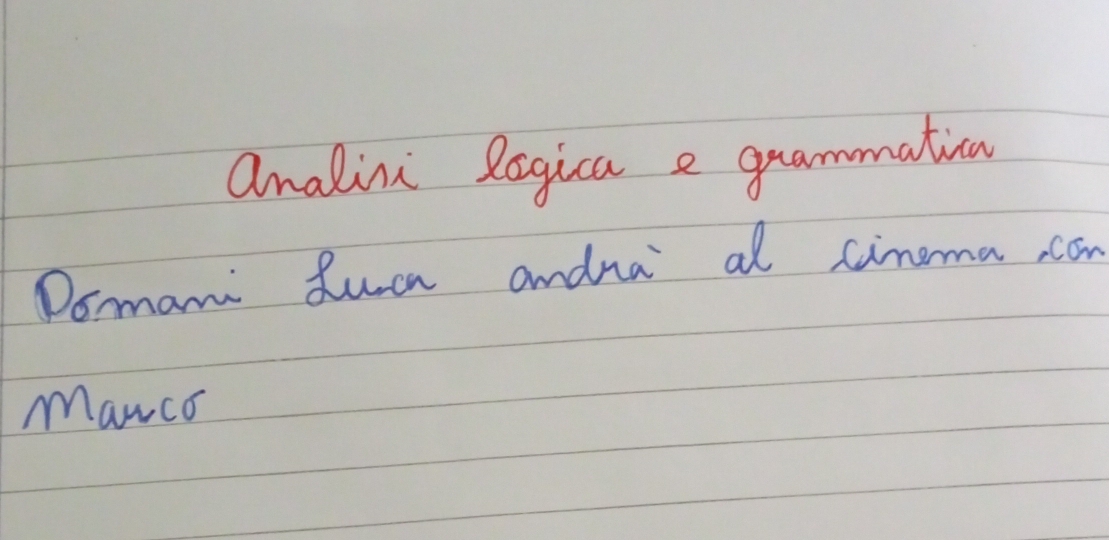 Analisi logica e grammatica
Domani Luca andrà al cinema con
Marco